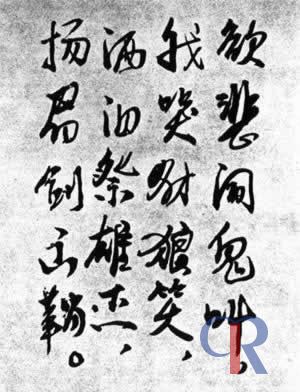 欲悲闻鬼叫，
我哭豺狼笑，
洒泪祭雄杰，
扬眉剑出鞘。
CR